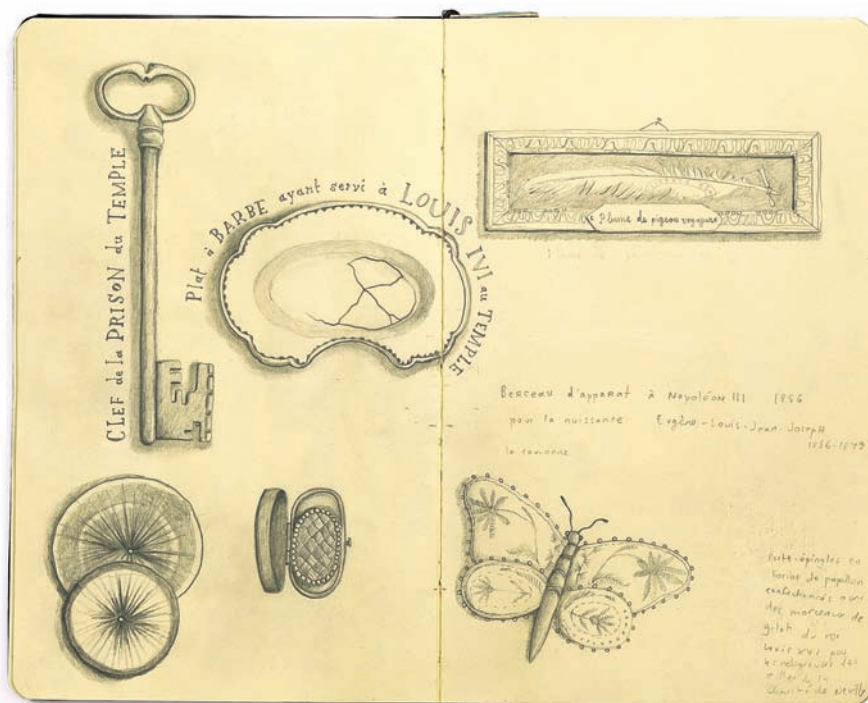 CLEF de la PRISON du TEMPLE
Plat à BARBE ayant servi à LOUIS IVI au TEMPLE
Plume de pigeon voyageur
Plume de
Berceau d'apparat à Napoléon III 1856
pour la naissance Eugène-Louis-Jean-Joseph
1856-1879
la couronne
Porte-épingles en
forme de papillon
confectionnés avec
des morceaux de
gilet du roi
Louis XVI par
les religieuses des
filles de la
charité de Neuilly